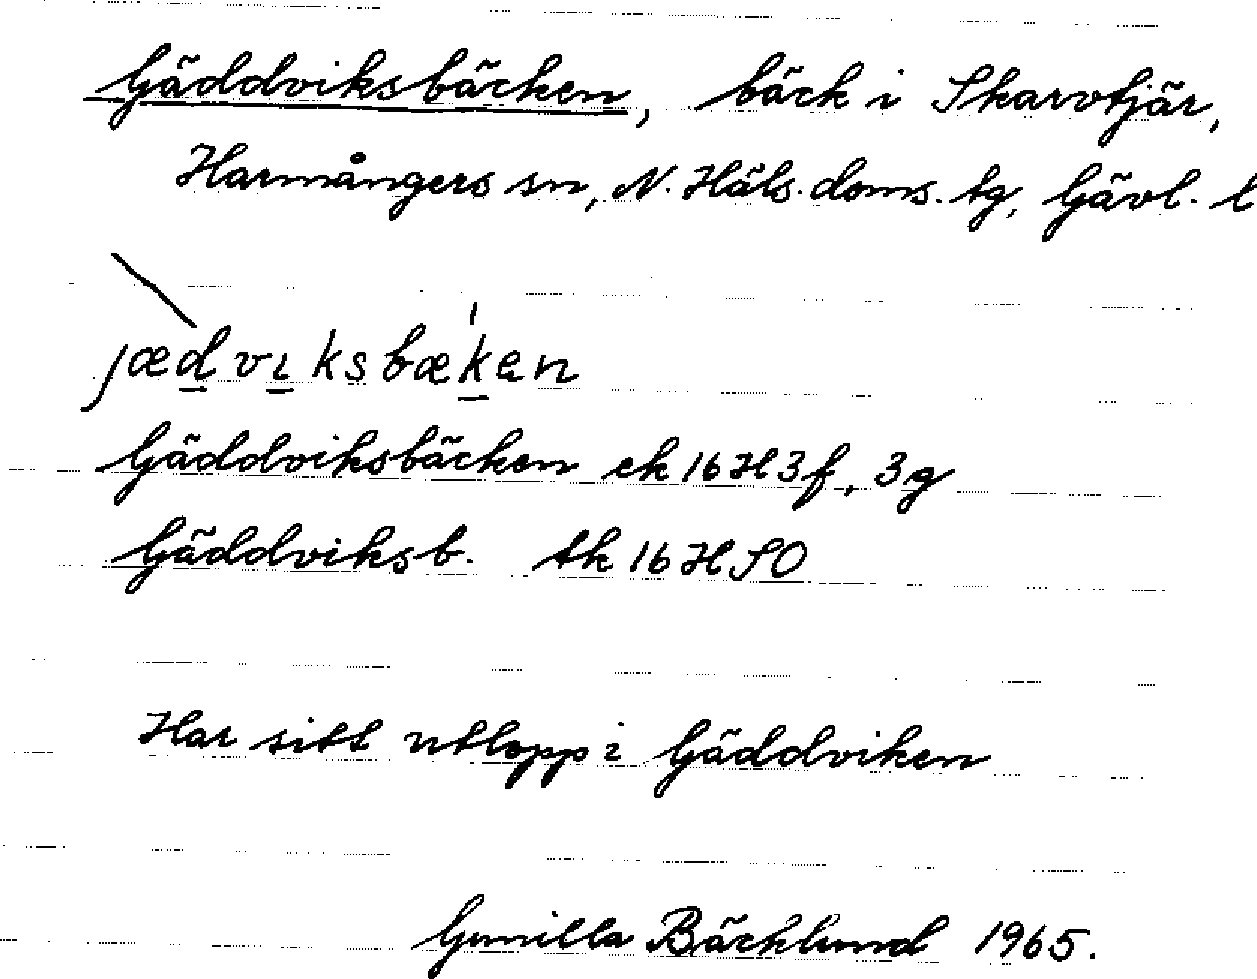 Gäddviksbäcken, bäck i Skarvtjär,
Harmångers sn, N. Häls. doms. tg, Gävl. l
jæd̲vı̲ksbæk̲en
Gäddviksbäcken ek 16H3f, 3g
Gäddviksb. tk 16H SO
Har sitt utlopp i Gäddviken
Gunilla Bäcklund 1965.